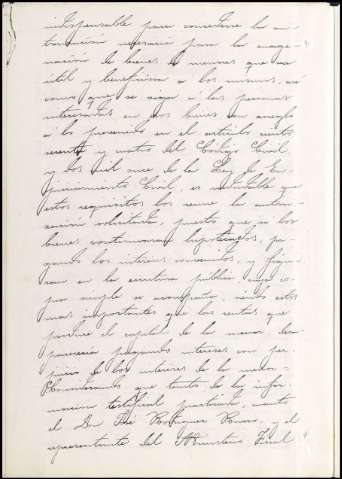 indispensable para concederse la au-
torizacion necesaria para la enage-
nacion de bienes de menores que sea
útil y beneficiosa a los mismos, así
como que se oiga á las personas
interesadas en sus bienes con arreglo
á lo prevenido en el artículo ciento
sesenta y cuatro del Código Civil
y dos mil once de la Ley de En-
juiciamiento Civil, es indudable que
estos requisitos los reune la autori-
zacion solicitada, puesto que si los
bienes continuaran hipotecados, pa-
gando los intereses vencidos, y figu-
ran en la escritura pública cuya co-
pia simple se acompaña, siendo estos
mas importantes que las rentas que
produce el capital de la menor, desa-
pareceria pagando intereses con per-
juicio de los intereses de la menor.=
Considerando que tanto de la infor-
macion testifical practicada, cuanto
el Don José Rodriguez, y el
representante del Ministerio Fiscal